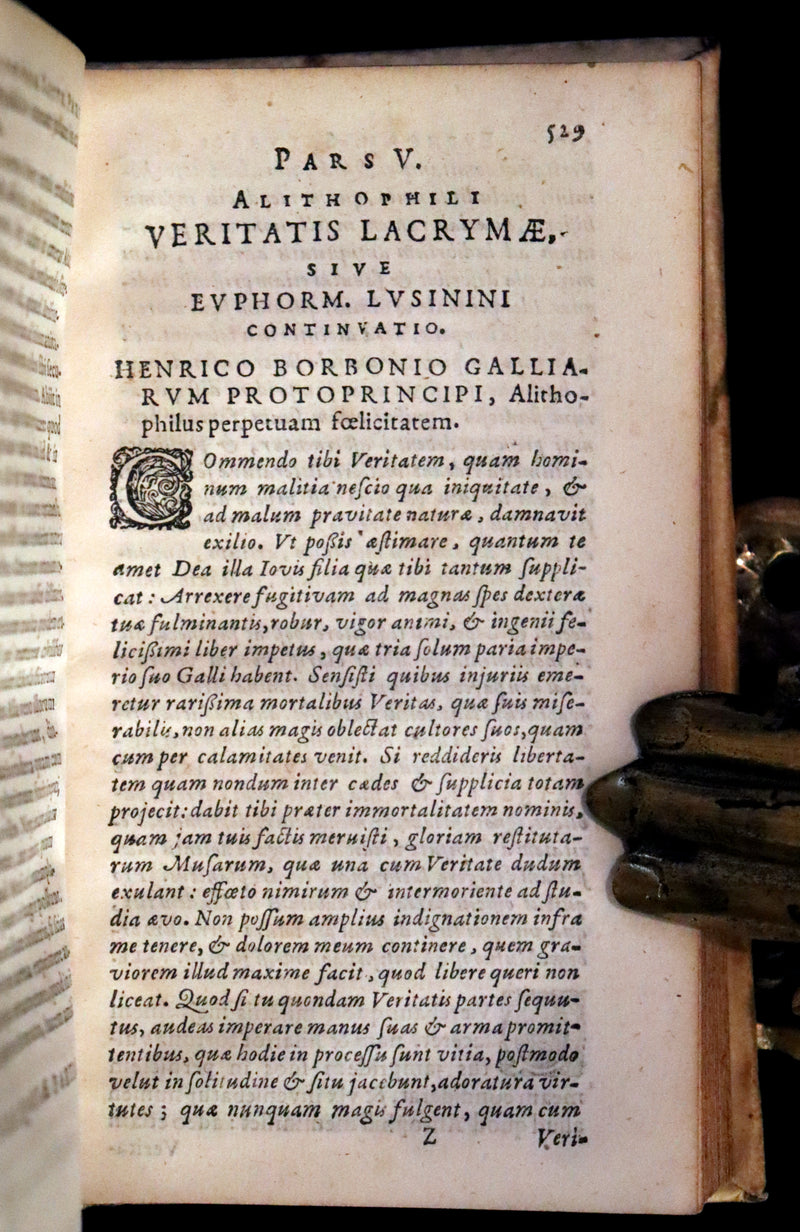 529
PARS V.
ALITHOPHILI
VERITATIS LACRYMÆ,
SIVE
EVPHORM. LVSININI
CONTINVATIO.
HENRICO BORBONIO GALLIA-
RVM PROTOPRINCIPI, Alitho-
philus perpetuam fœlicitatem.
COmmendo tibi Veritatem, quam homi-
num malitia neſcio qua iniquitate, &
ad malum pravitate naturæ, damnavit
exilio. Vt poßis æſtimare, quantum te
amet Dea illa Iovis filia quæ tibi tantum ſuppli-
cat: Arrexere fugitivam ad magnas ſpes dexteræ
tuæ fulminantis, robur, vigor animi, & ingenii fe-
licißimi liber impetus, quæ tria ſolum paria impe-
rio ſuo Galli habent. Senſiſti quibus injuriis eme-
retur rarißima mortalibus Veritas, quæ ſuis miſe-
rabilis, non alias magis oblectat cultores ſuos, quam
cum per calamitates venit. Si reddideris liberta-
tem quam nondum inter cædes & ſupplicia totam
projecit: dabit tibi præter immortalitatem nominis,
quam jam tuis factis meruiſti, gloriam reſtituta-
rum Muſarum, quæ una cum Veritate dudum
exulant: effœto nimirum & intermoriente ad ſtu-
dia ævo. Non poſſum amplius indignationem infra
me tenere, & dolorem meum continere, quem gra-
viorem illud maxime facit, quod libere queri non
liceat. Quod ſi tu quondam Veritatis partes ſequu-
tus, audeas imperare manus ſuas & arma promit-
tentibus, quæ hodie in proceſſu ſunt vitia, poſtmodo
velut in ſolitudine & ſitu jacebunt, adoratura vir-
tutes; quæ nunquam magis fulgent, quam cum
Z Veri-